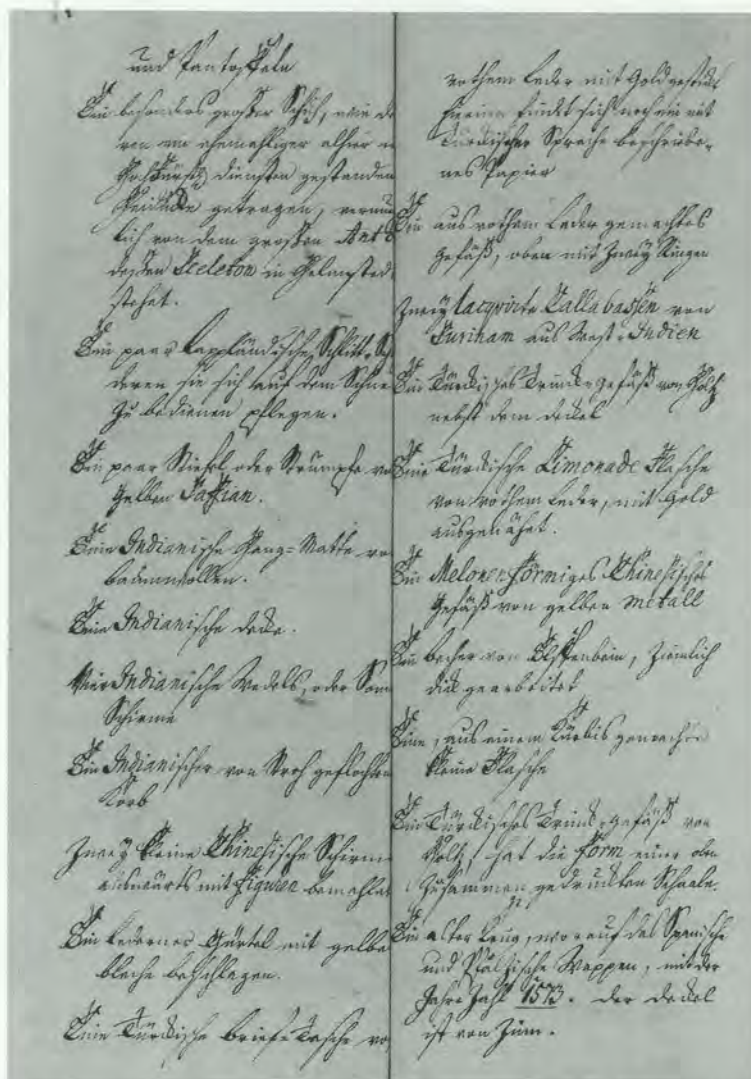 und Pantoffeln
Ein besonders großer Schuh, wie de
ren ein ehemahliger alhier in
diensten gestanden
Heiducke getragen, vermu
lich von dem großen
deßen Sceleton in Helmsted
stehet.
Ein paar Lappländische Schlitt-Sch
deren sie sich auf dem Schnee
zu bedienen pflegen.
Ein paar Stiefel oder Strümpfe vo
gelben Saffian.
Eine Indianische Hang-Matte vo
baumwollen.
Eine Indianische decke.
Vier Indianische Wedels, oder Son
Schirme
Ein Indianischer von Stroh geflochten
Korb
Zwey kleine Chinesische Schirme
auswärts mit Figuren bemahlet
Ein lederner Gürtel mit gelbe
bleche beschlagen.
Eine Türckische briefe Tasche vo
rothem Leder mit Gold gestick
hierinn findet sich noch ein mit
Türckischer Sprache beschriebe-
nes Papier
Ein aus rothem Leder gemachtes
Gefäß, oben mit Zwey Ringen
Zwey lacqvirte Callabassen von
Surinam aus West-Indien
Ein Türckisches Trinck-gefäß von Holtz
nebst dem deckel
Eine Türckische Limonade Flasche
von rothem Leder, mit Gold
ausgenähet.
Ein Melonen förmiges Chinesisches
Gefäß von gelben metall
Ein becher von Elffenbein, Ziemlich
dick gearbeitet
Eine, aus einem Kürbis gemachte
kleine Flasche
Ein Türckisches Trinck-gefäß von
Holtz, hat die Form einer oben
Zusammen gedruckten Schaale.
Ein alter Krug, worauf das Spanische
und Pfältzische Wappen, mit der
Jahr Zahl 1573. der deckel
ist von Zinn.